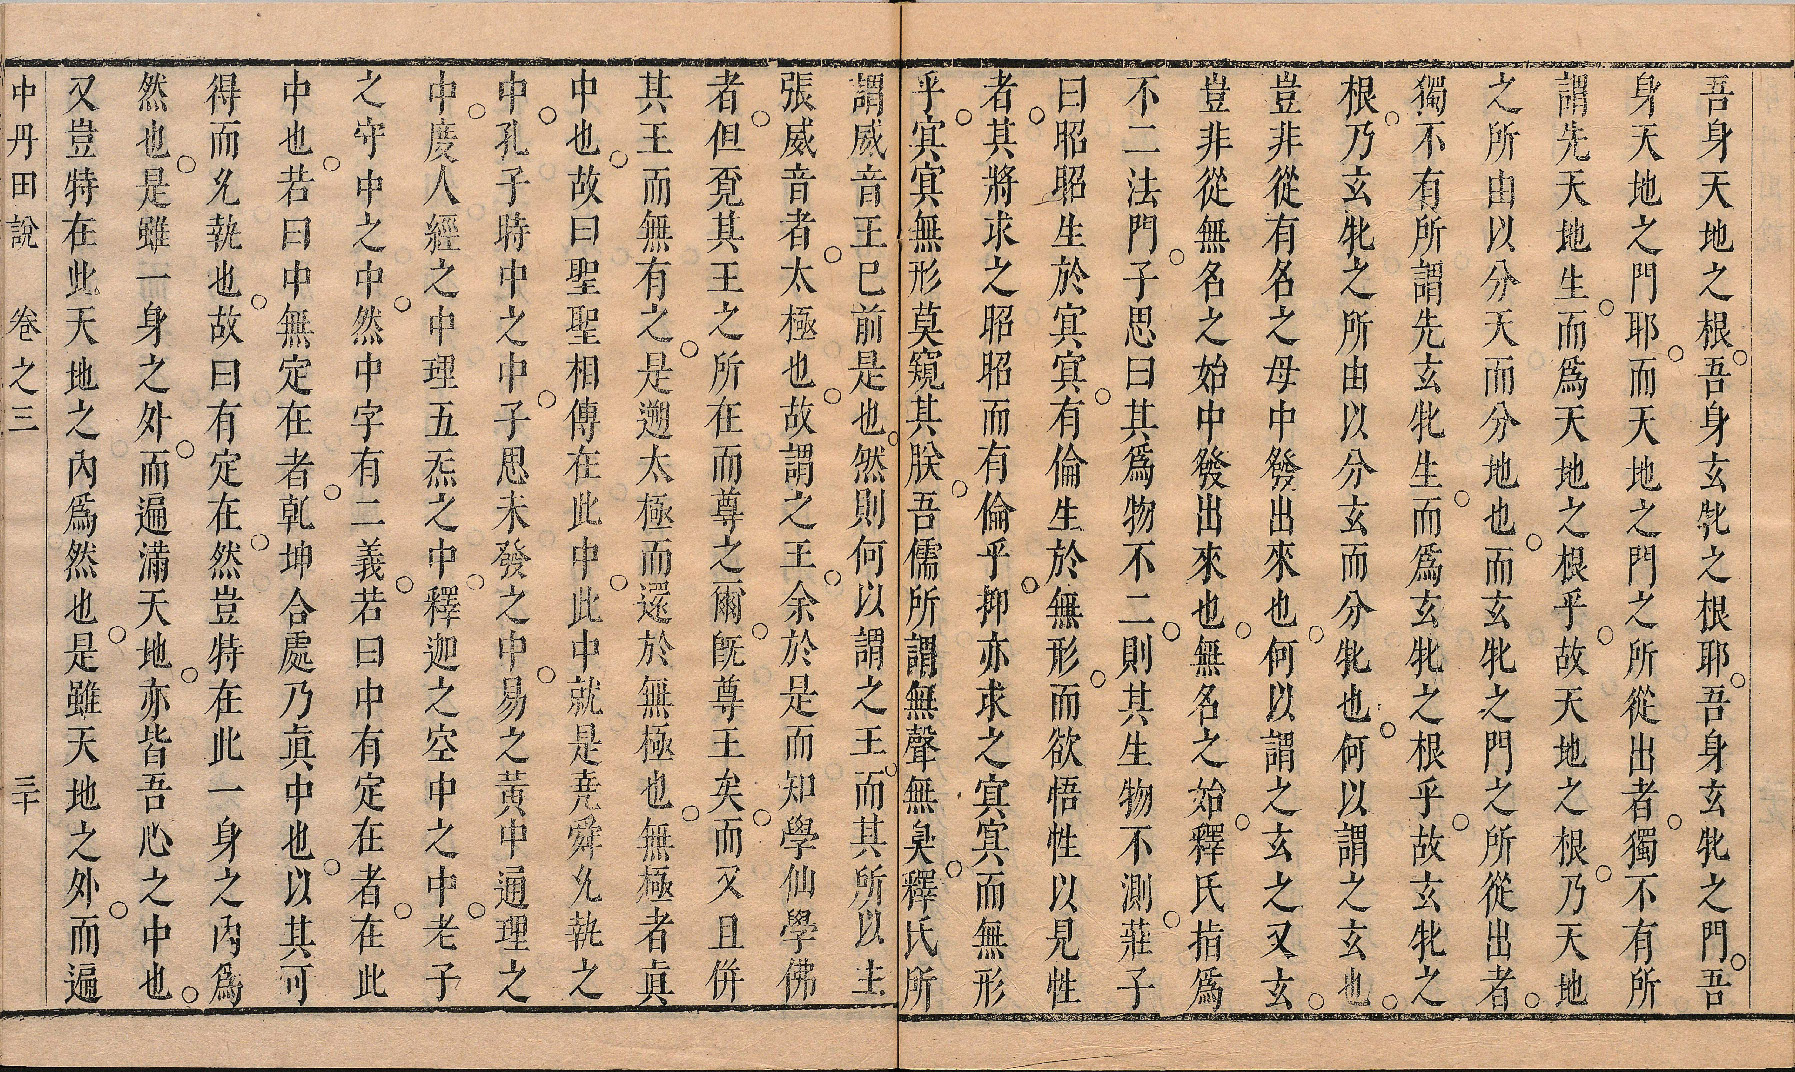 吾身天地之根吾身玄牝之根耶吾身玄牝之門吾
身天地之門耶而天地之門之所從出者獨不有所
謂先天地生而爲天地之根乎故天地之根乃天地
之所由以分天而分地也而玄牝之門之所從出者
獨不有所謂先玄牝生而爲玄牝之根乎故玄牝之
根乃玄牝之所由以分玄而分牝也何以謂之玄也
豈非從有名之母中發出來也何以謂之玄之又玄
豈非從無名之始中發出來也無名之始釋氏指爲
不二法門子思曰其爲物不二則其生物不測莊子
曰昭昭生於㝠㝠有倫生於無形而欲悟性以見性
者其將求之昭昭而有倫乎抑亦求之㝠㝠而無形
乎㝠㝠無形莫窺其朕吾儒所謂無聲無臭釋氏所
謂威音王巳前是也然則何以謂之王而其所以主
張威音者太極也故謂之王余於是而知學仙學佛
者但覔其王之所在而尊之爾旣尊王矣而又且併
其王而無有之是遡太極而還於無極也無極者眞
中也故曰聖聖相傳在此中此中就是堯舜允執之
中孔子時中之中子思未發之中易之黃中通理之
中度人經之中理五炁之中釋迦之空中之中老子
之守中之中然中字有二義若曰中有定在者在此
中也若曰中無定在者乹坤合處乃眞中也以其可
得而允執也故曰有定在然豈特在此一身之內爲
然也是雖一身之外而遍滿天地亦皆吾心之中也
又豈特在此天地之內爲然也是雖天地之外而遍
中丹田說 卷之三 三十